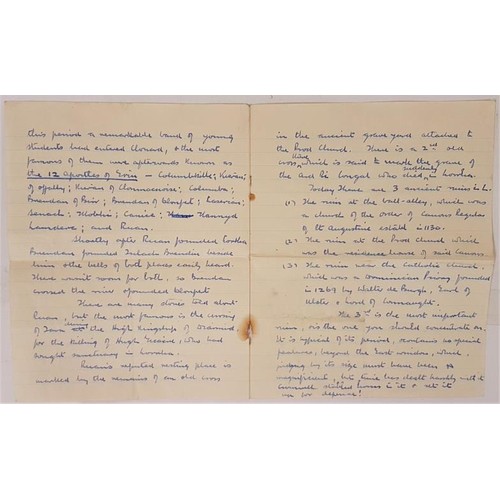 this period a remarkable band of young
students had entered Clonard, & the most
famous of them were afterwards known as
the 12 Apostles of Erin — Columbkille; Kieran;
of Offaly; Kieran of Clonmacnoise; Columba;
Brendan of Birr; Brendan of Clonfert; Laserian;
Senach; Mobhi; Canice;
and Ruan.
Shortly after Ruan founded Lorrha
Brendan founded beside
him & the bells of both places easily heard.
There wasn't room for both, so Brendan
crossed the river & founded Clonfert
There are many stories told about
Ruan, but the most famous is the cursing
of Tara & the High Kingship of Diarmid,
for the killing of Hugh Guaire, who had
sought sanctuary in Lorrha.
Ruan's reputed resting place is
marked by the remains of an old cross
in the ancient graveyard attached to
the Prod Church. There is a 2nd old
cross there which is said to mark the grave of
the Ard Rí who died suddenly in Lorrha.
Today there are 3 ancient ruins in L.
(1) The ruin at the ball-alley, which was
a church of the order of Canons Regular
of St Augustine estab'd in 1130.
(2) The ruin at the Prod church which
was the residence house of said Canons
(3) The ruin near the Catholic Church,
which was a Dominican Priory founded
in 1269 by Walter de Burgh, Earl of
Ulster & Lord of Connaught.
The 3rd is the most important
ruin, & is the one you should concentrate on.
It is typical of its period, contains no special
features, beyond the East window, which
judging by its size must have been
magnificent, but time has dealt harshly with it
in it & set it
up for defence!